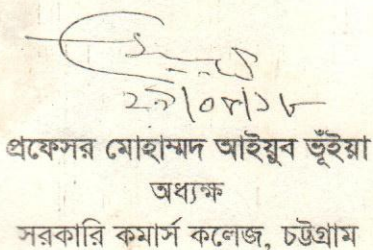 ২৯/০৮/১৮
প্রফেসর মোহাম্মদ আইয়ুব ভূঁইয়া
অধ্যক্ষ
সরকারি কমার্স কলেজ, চট্টগ্রাম